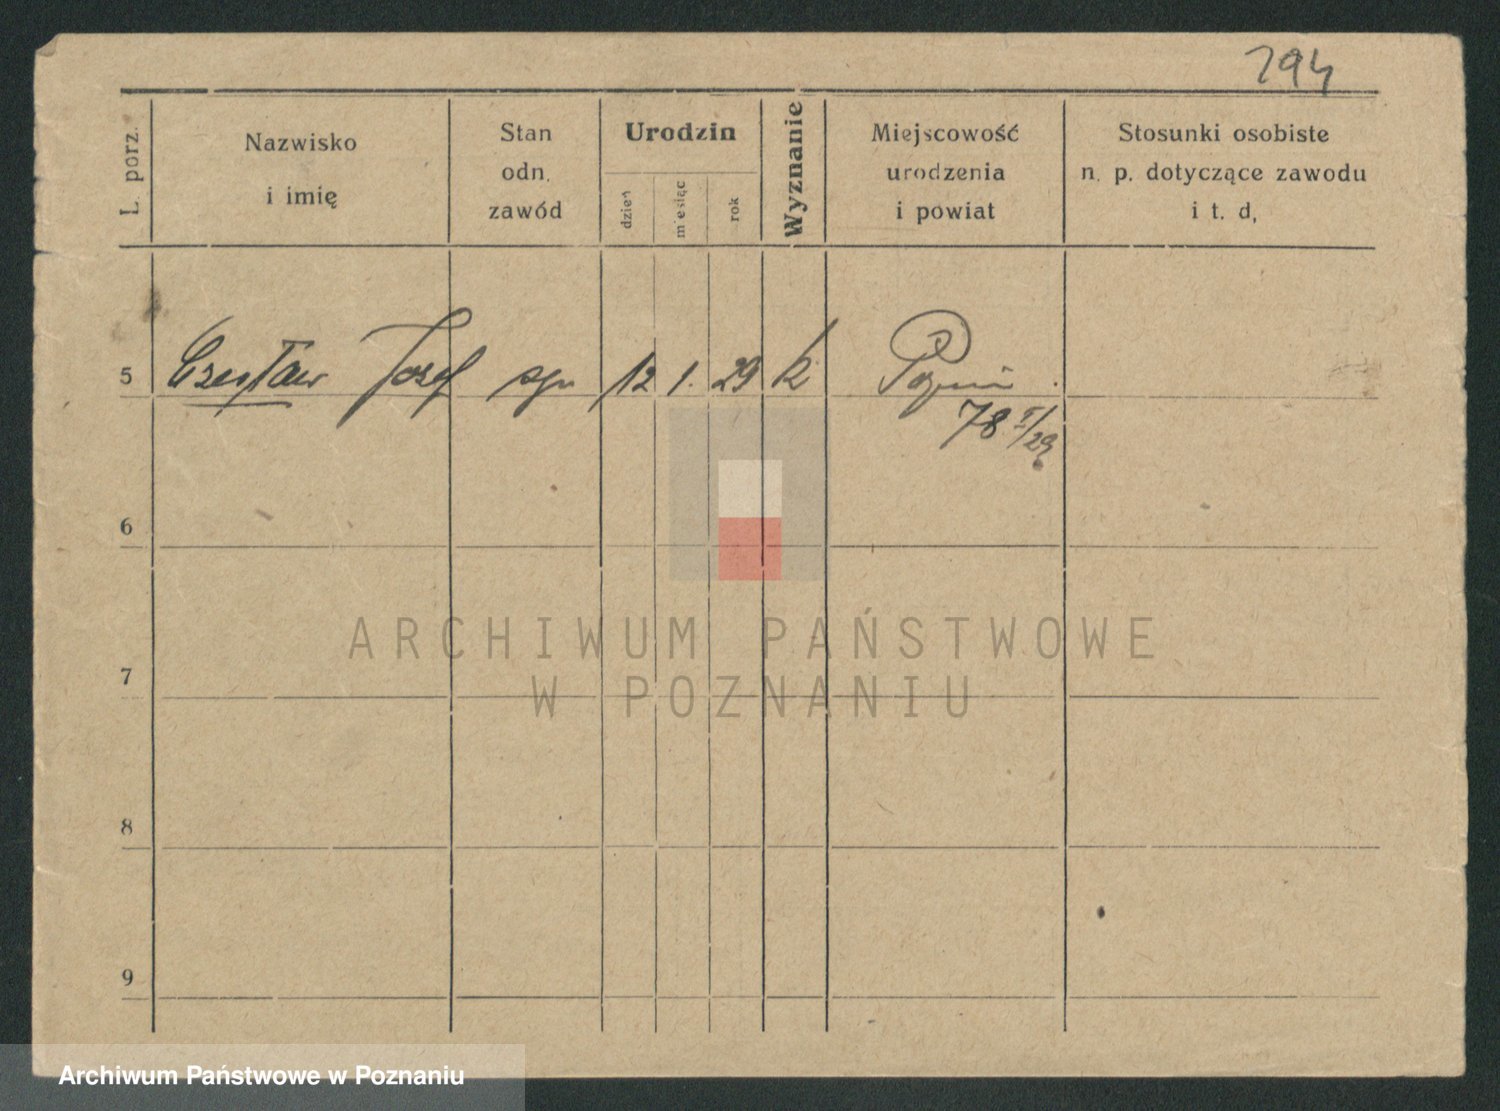 294
L. porz.
Nazwisko
i imię
Stan
odn.
zawód
Urodzin
dzień
miesiąc
rok
Wyznanie
Miejscowość
urodzenia
i powiat
Stosunki osobiste
n. p. dotyczące zawodu
i t. d,
5 Czesław Józef syn 12 1. 29 k Poznań
78 I/29
6
7
8
9
ARCHIWUM PAŃSTWOWE
W POZNANIU
Archiwum Państwowe w Poznaniu